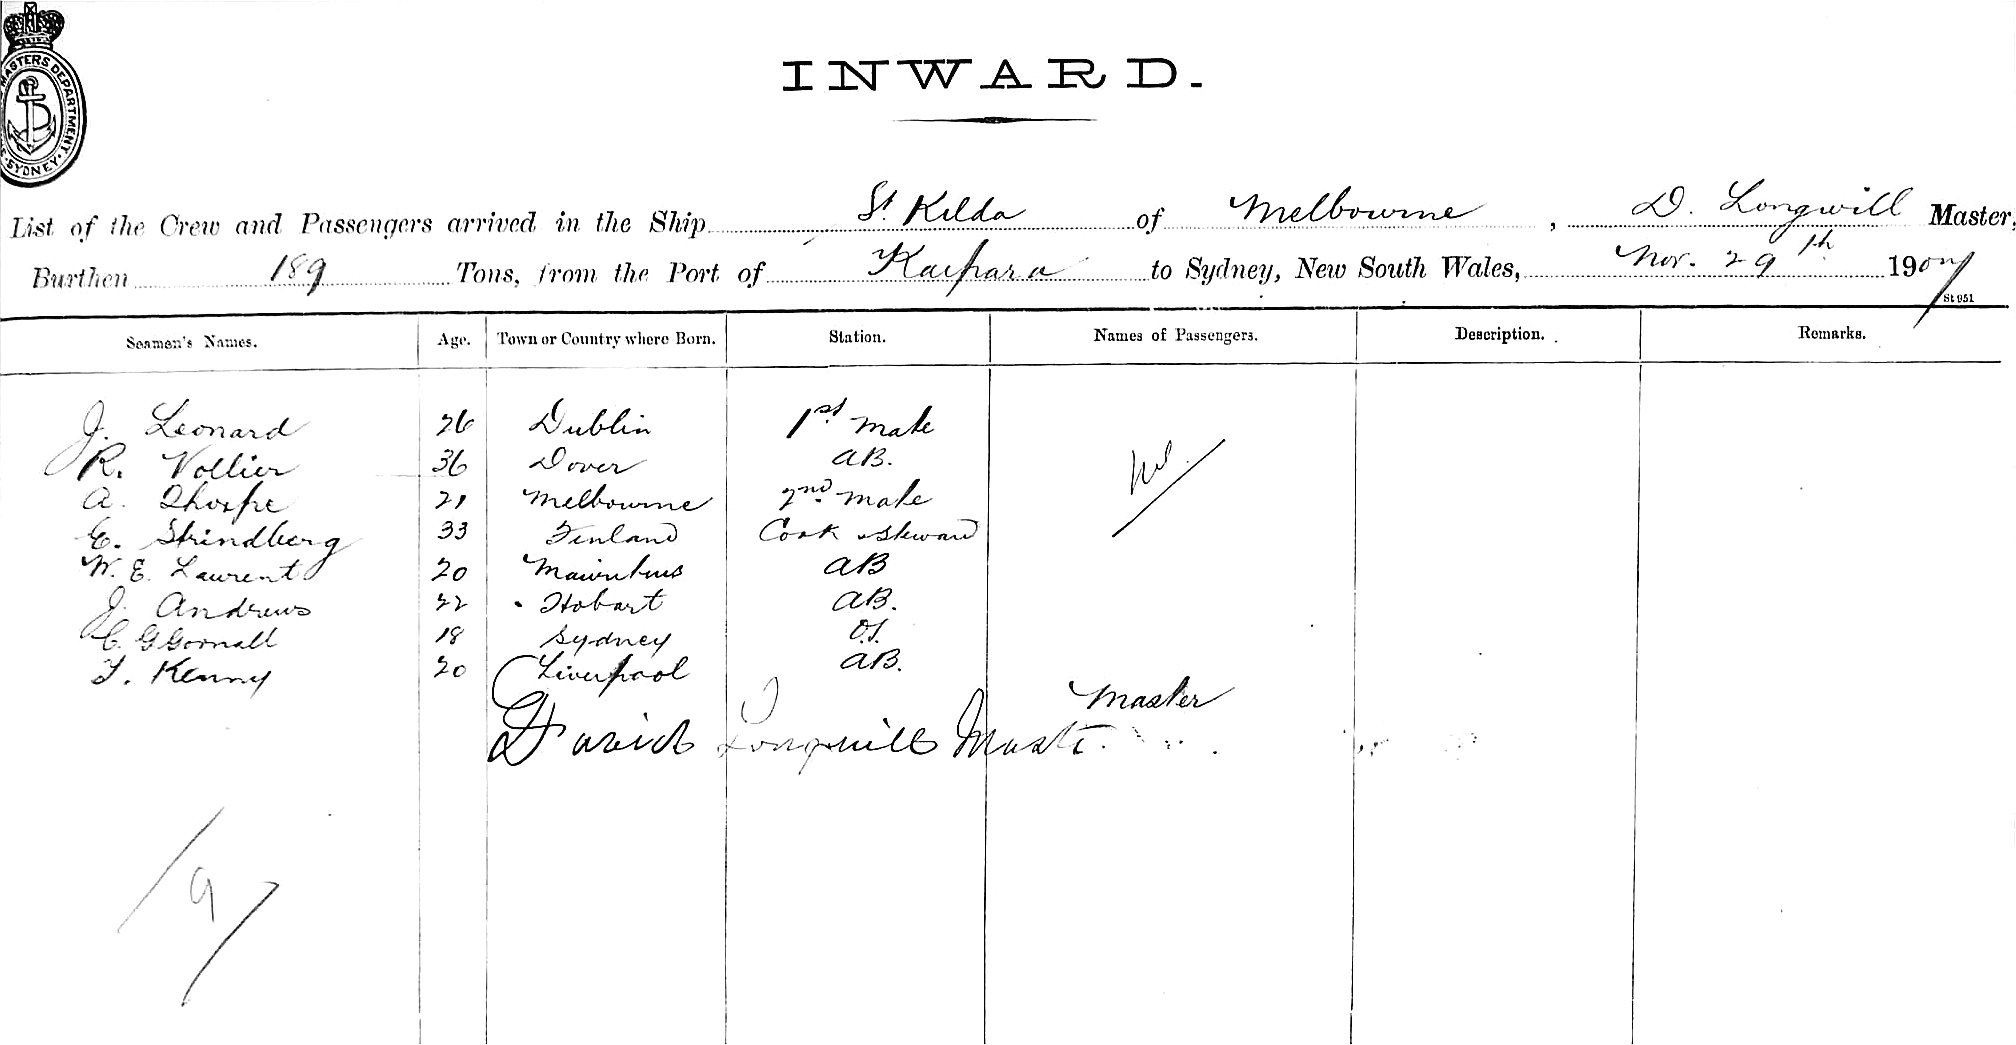 MASTERS DEPARTMENT
SYDNEY
INWARD.
List of the Crew and Passengers arrived in the Ship St Kilda of Melbourne, D. Longwill Master,
Burthen 189 Tons, from the Port of Kaipara to Sydney, New South Wales, Nov. 29th 1907
St 951
Seamen's Names. Age. Town or Country where Born. Station. Names of Passengers. Description. Remarks.
J. Leonard 26 Dublin 1st Mate
R. Vollier 36 Dover AB. Nil.
A. Thorpe 21 Melbourne 2nd Mate
E. Strindberg 33 Finland Cook & Steward
W. E. Laurent 20 Mauritius AB
J. Andrews 22 Hobart AB.
C. G Gornall 18 Sydney O.S.
T. Kenny 20 Liverpool AB.
Master
David Longwill Master
9